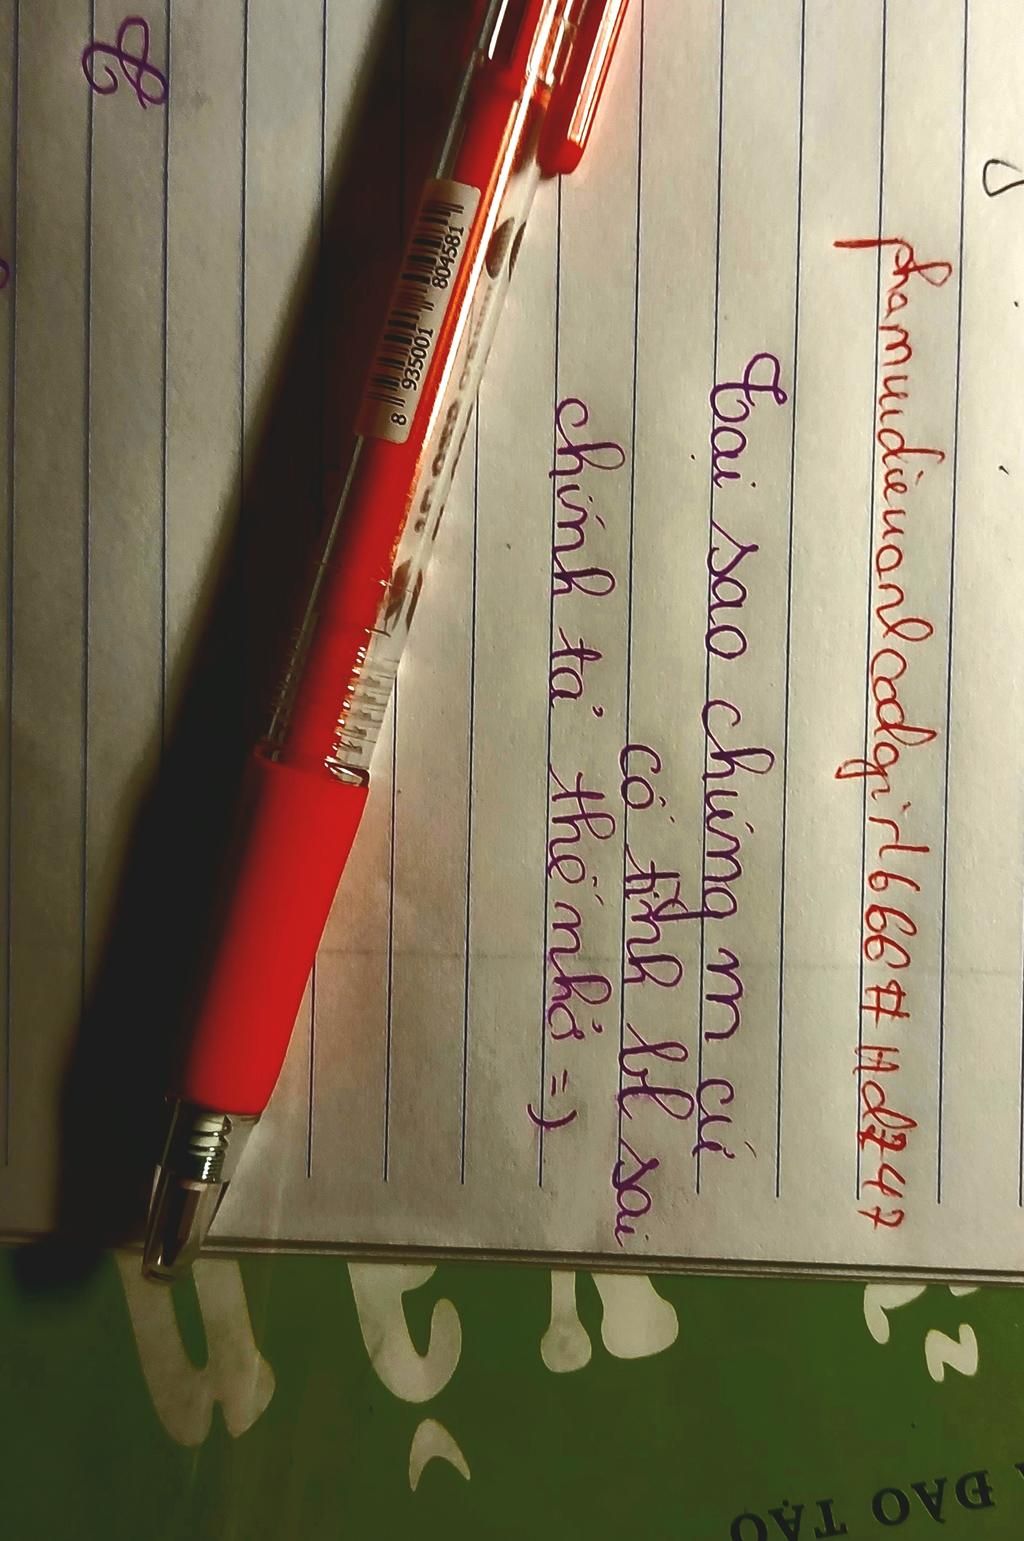 phamuudieuanhcadgirl666#Hd747
tại sao chúng m cứ
cố tình bl sai
chính tả thế nhở =)
8 935001 804581
ĐÀO TẠO